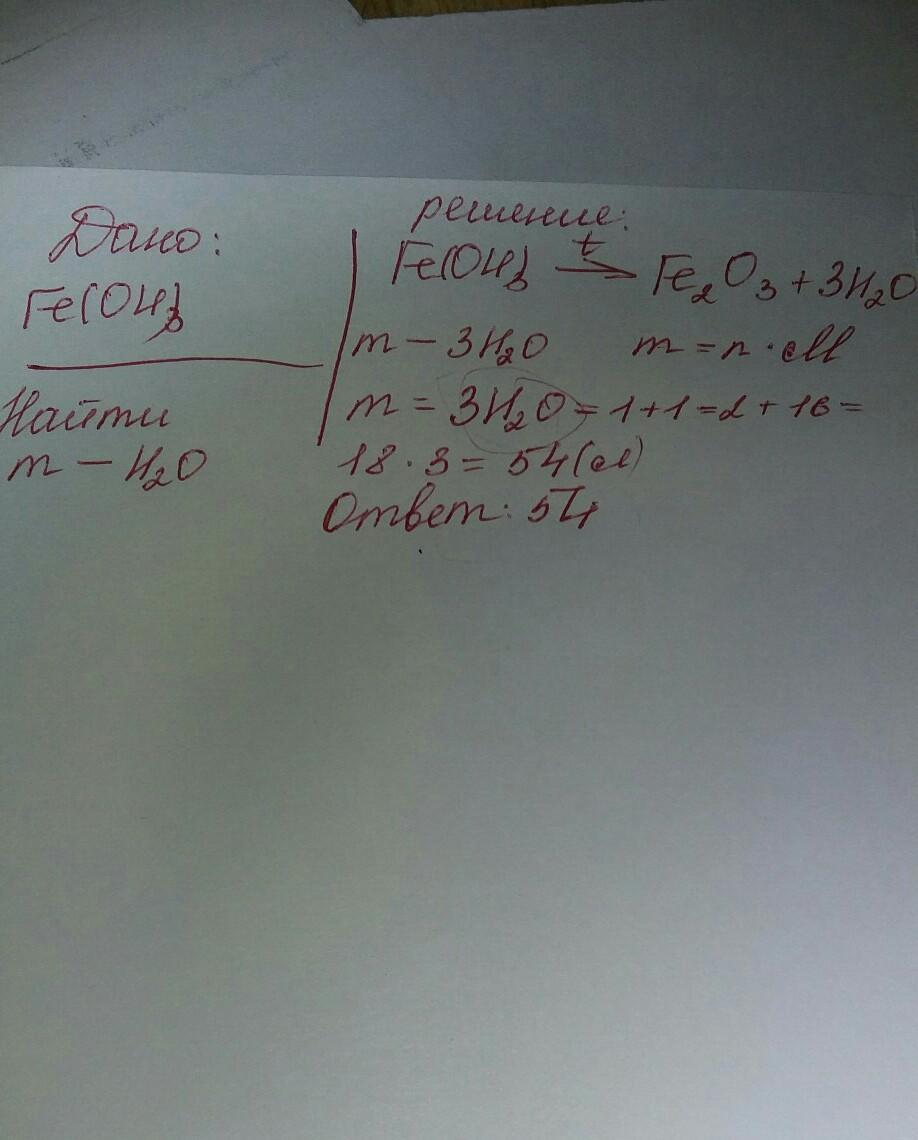 Дано:
Fe(OH)3
Найти
m – H2O
решение:
t
Fe(OH)3 → Fe2O3 + 3H2O
m – 3H2O m = n · M
m = 3H2O = 1+1=2+16=
18 · 3 = 54(м)
Ответ: 54